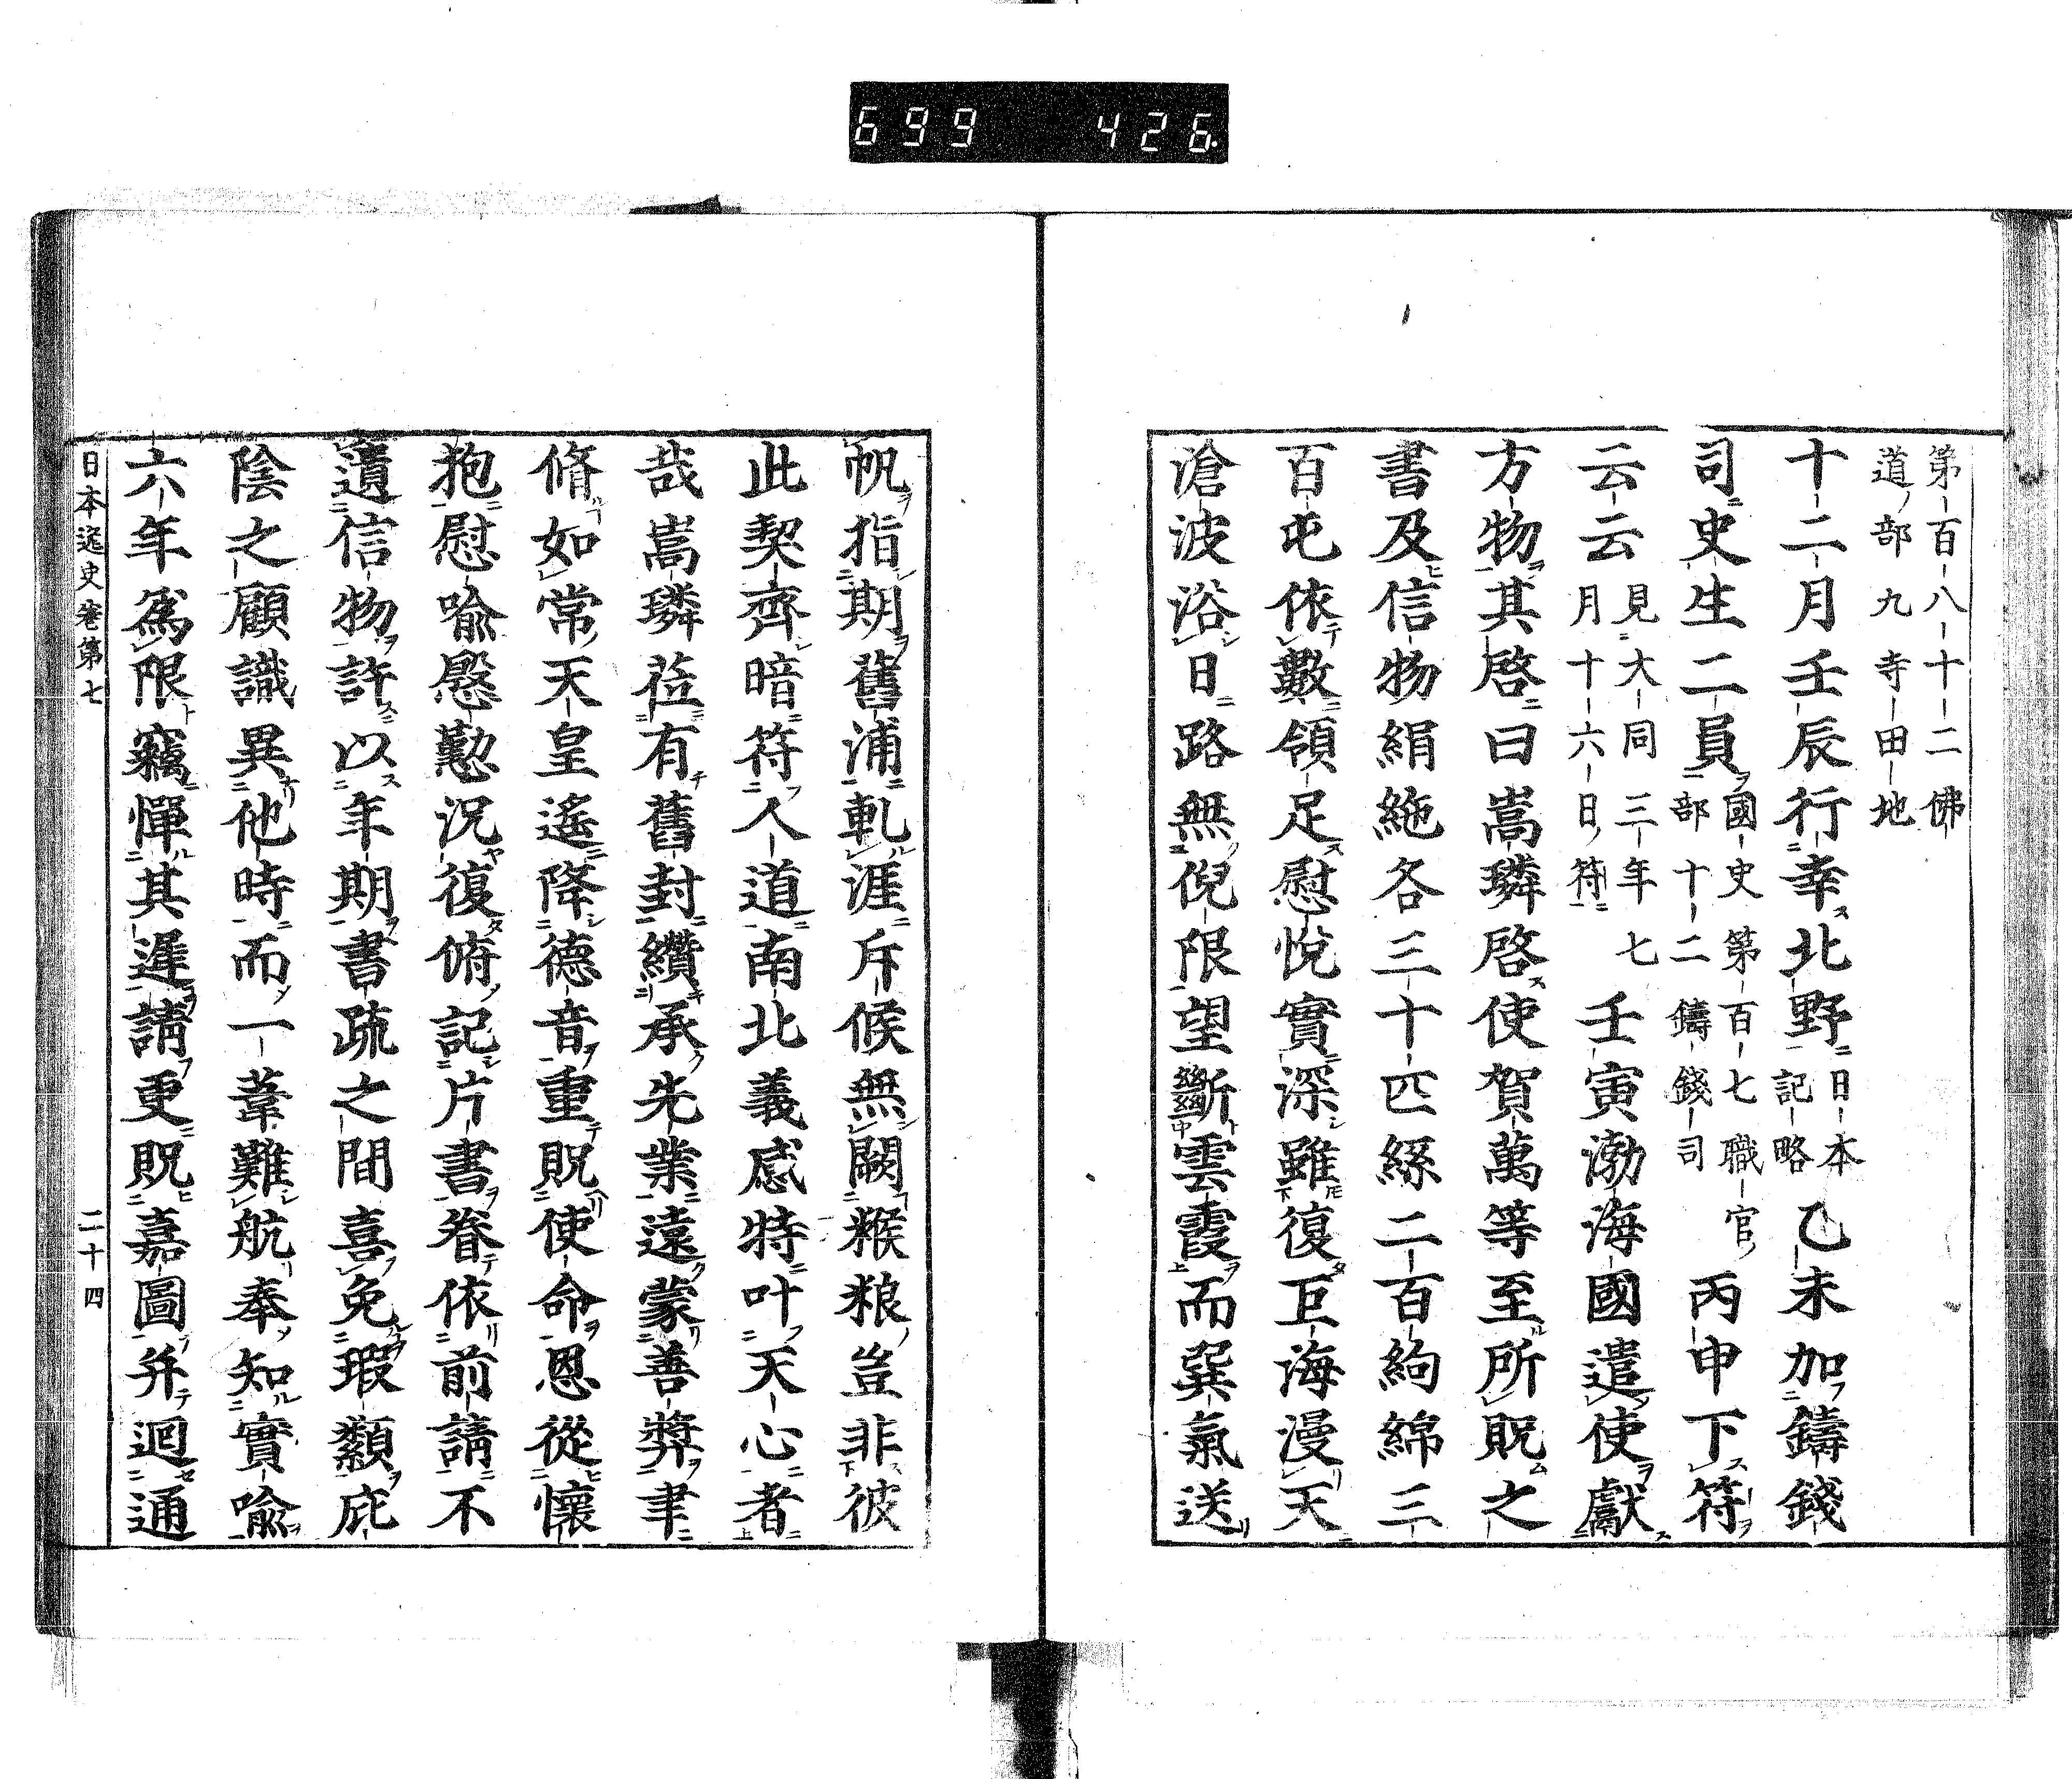 699 426
第百八十二佛
道部九寺田地
十二月壬辰行幸北野日本記略乙未加鑄錢
司史生二員國史第百七職官部十二鑄錢司丙申下符
云云見大同三年七月十六日符壬寅渤海國遣使獻
方物其啓曰嵩璘啓使賀萬等至所貺之
書及信物絹絁各三十匹絲二百絇綿三
百屯依數領足慰悅實深雖復巨海漫天
滄波浴日路無倪限望斷雲霞而巽氣送
帆指期舊浦軋涯斥候無闕糇粮豈非彼
此契齊暗符人道南北義感特叶天心者
哉嵩璘莅有舊封纘承先業遠蒙善奬聿
脩如常天皇遙降德音重貺使命恩從懷
抱慰喩慇懃況復俯記片書眷依前請不
遺信物許以年期書疏之間喜免瑕纇庇
陰之顧識異他時而一葦難航奉知實喩
六年爲限竊憚其遲請更貺嘉圖幷迴通
日本逸史卷第七 二十四